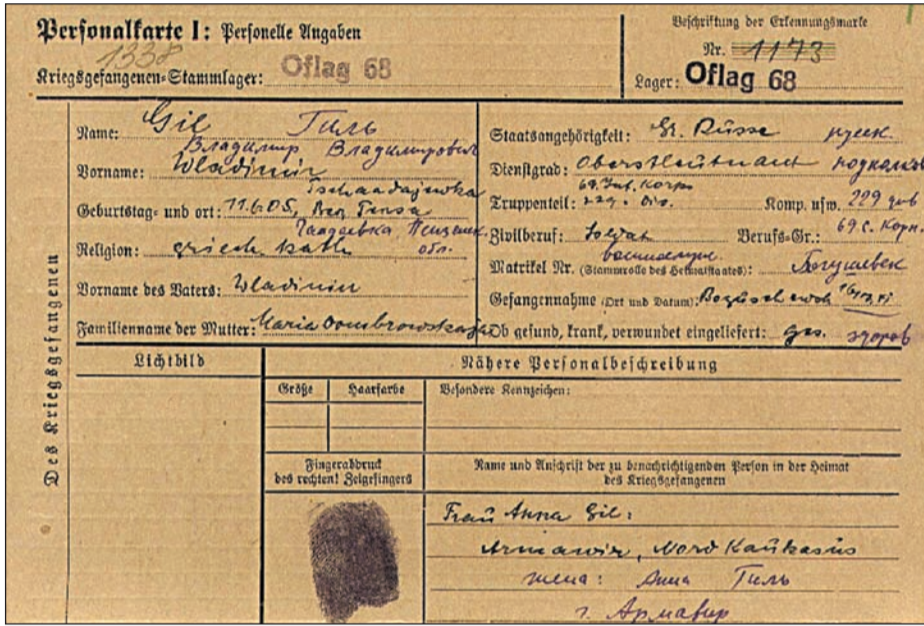 Personalkarte I: Personelle Angaben
1338
Kriegsgefangenen-Stammlager: Oflag 68
Beschriftung der Erkennungsmarke
Nr. 1173
Lager: Oflag 68
Des Kriegsgefangenen
Name: Gil Гиль
Владимир Владимирович
Vorname: Wladimir
Tschaadajewka
Geburtstag- und ort: 11.6.05,
Чаадаевка
обл.
Religion: griech. kath.
Vorname des Vaters: Wladimir
Familienname der Mutter: Maria Dombrowskaja
Staatsangehörigkeit: Gr. Russe русск.
Dienstgrad: Oberstleutnant
69. Inf. Korps
Truppenteil: 229. Div. Komp. usw. 229
69 с. корп.
Zivilberuf: Soldat Berufs-Gr.:
Matrikel Nr. (Stammrolle des Heimatstaates): Богушевск
Gefangennahme (Ort und Datum):
Ob gesund, krank, verwundet eingeliefert: ges. здоров
Lichtbild
Nähere Personalbeschreibung
Größe Haarfarbe Besondere Kennzeichen:
Fingerabdruck
des rechten! Zeigefingers
Name und Anschrift der zu benachrichtigenden Person in der Heimat
des Kriegsgefangenen
Frau Anna Gil:
Armawir, Nord Kaukasus
жена: Анна Гиль
г. Армавир